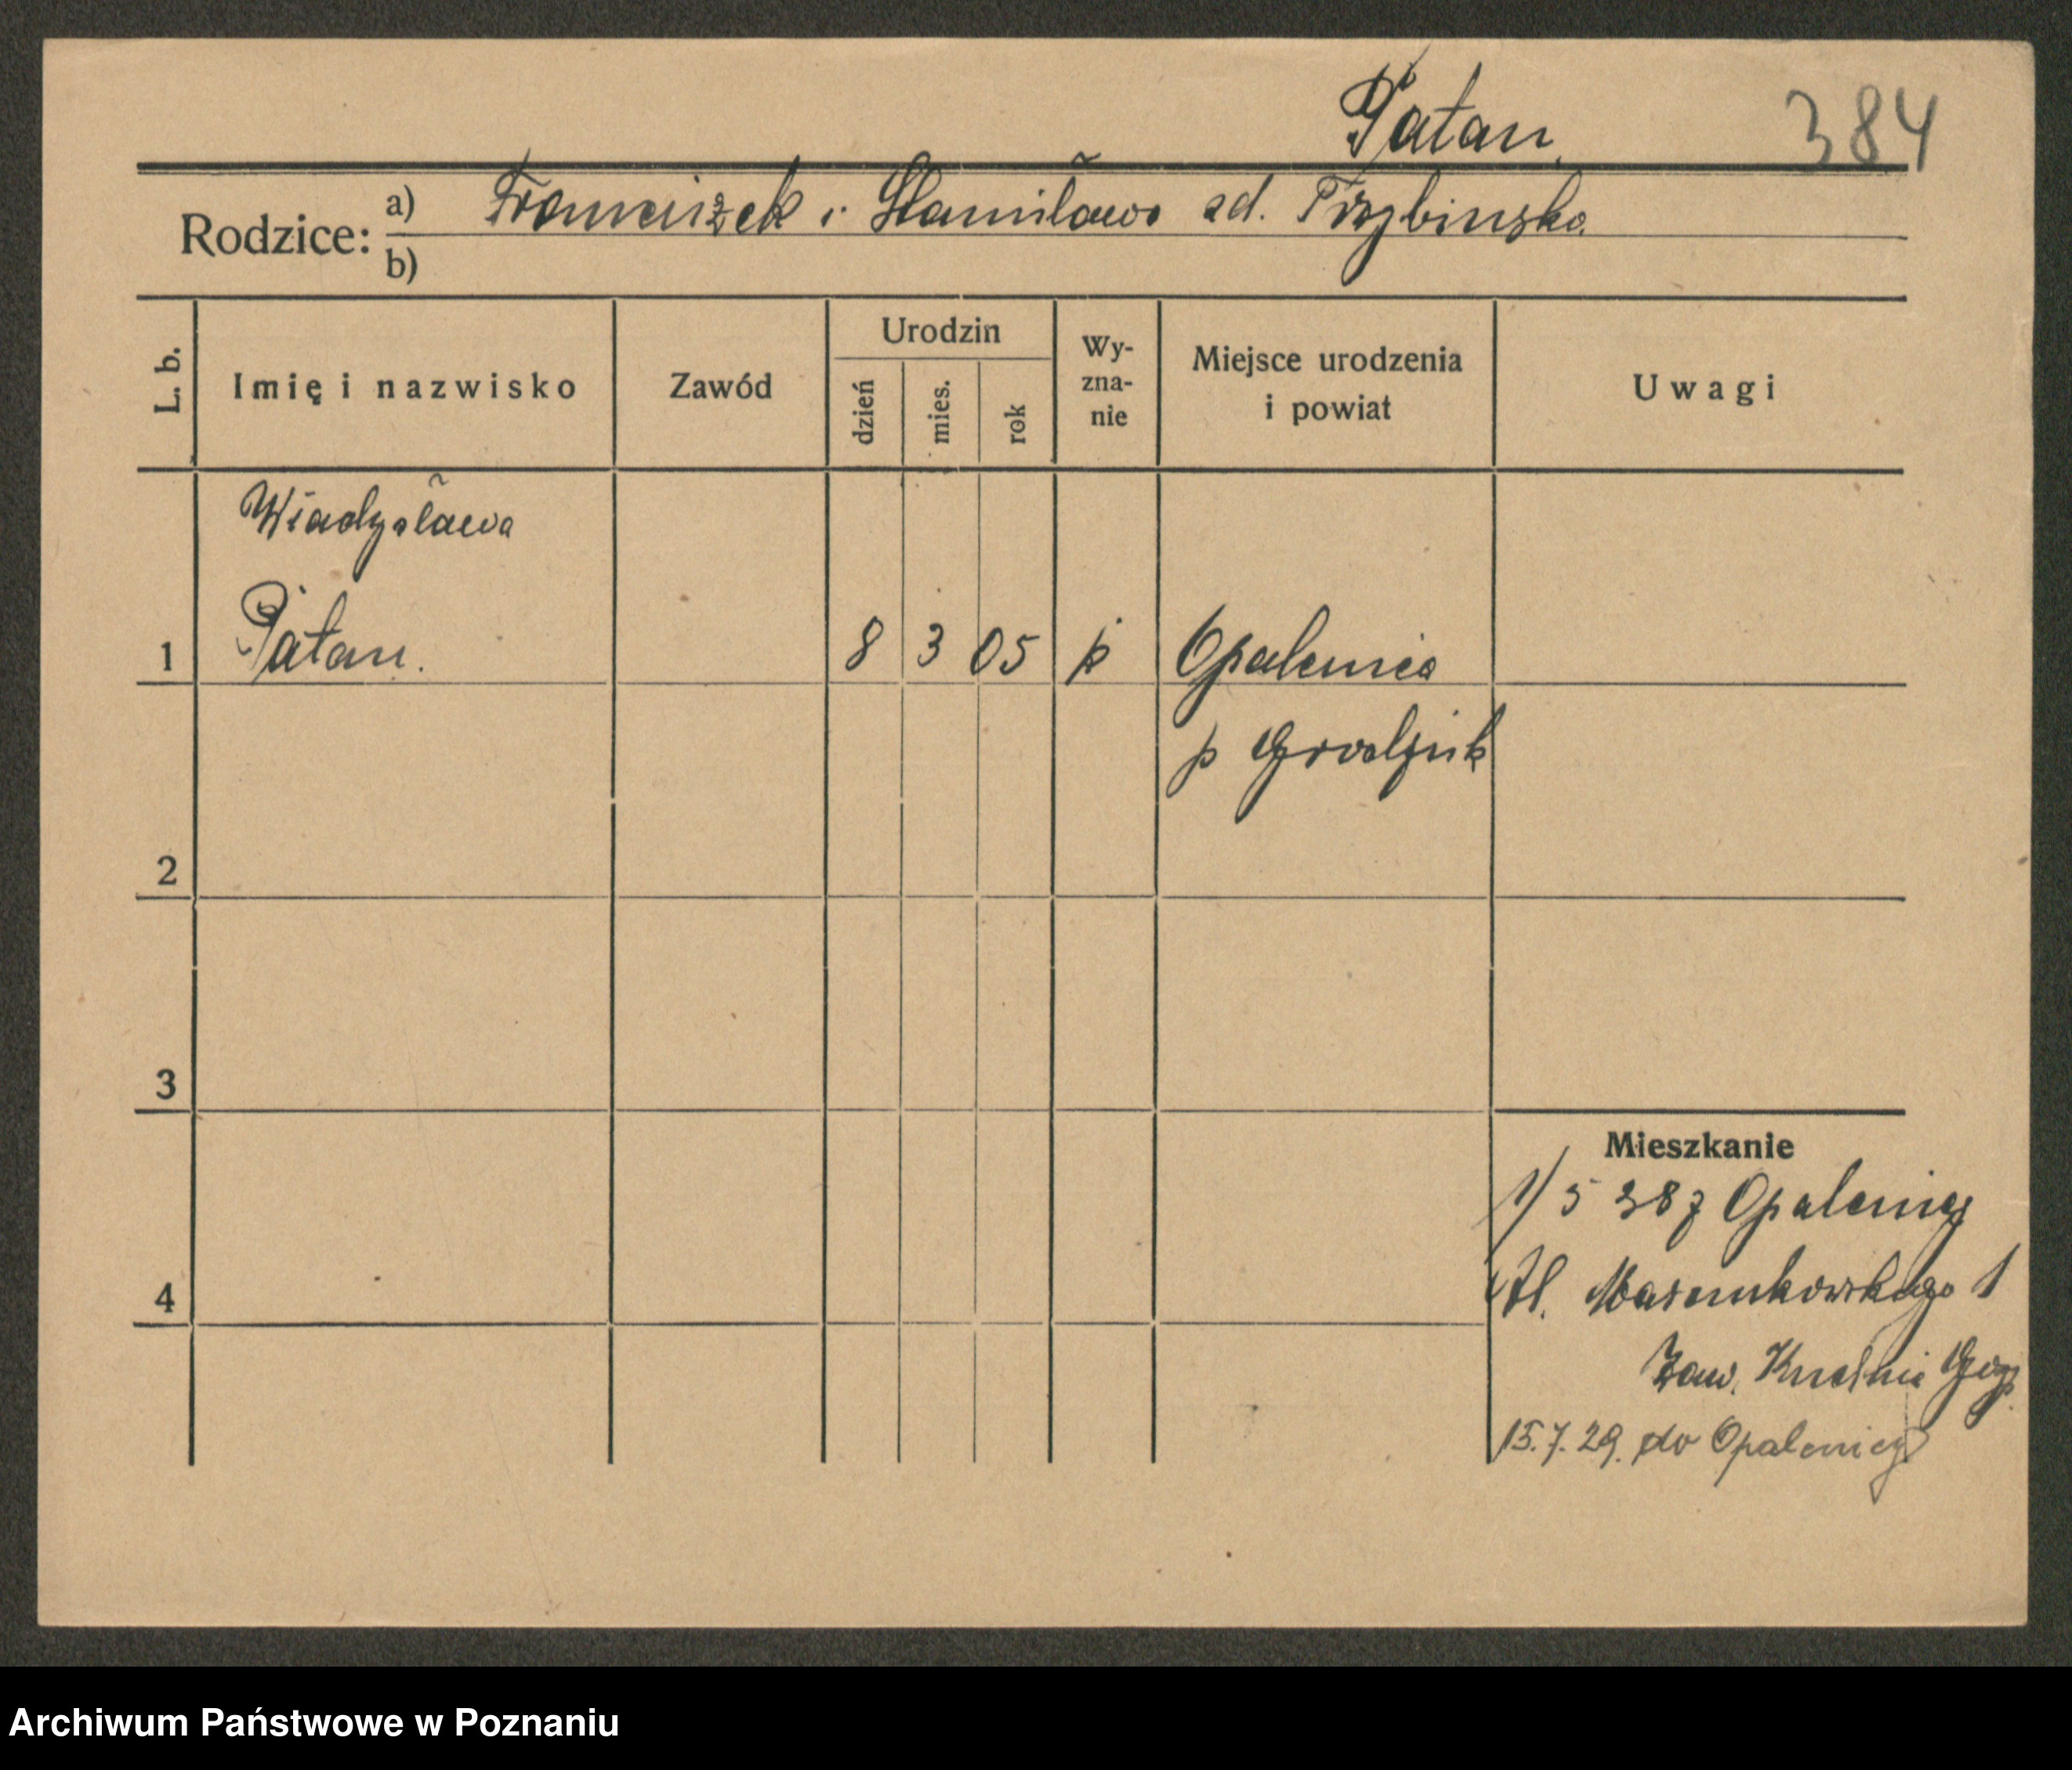 Patan
384
Rodzice: a) Franciszek i Stanisława zd. Przybinska
b)
L. b. Imię i nazwisko Zawód Urodzin dzień mies. rok Wyznanie Miejsce urodzenia i powiat Uwagi
Władysława
1 Patan. 8 3 05 k Opalenica
p Grodzisk
2
3
Mieszkanie
1/5 28 z Opalenicy
4 Ul.  1
Zaw.
15.7.29. do Opalenicy
Archiwum Państwowe w Poznaniu